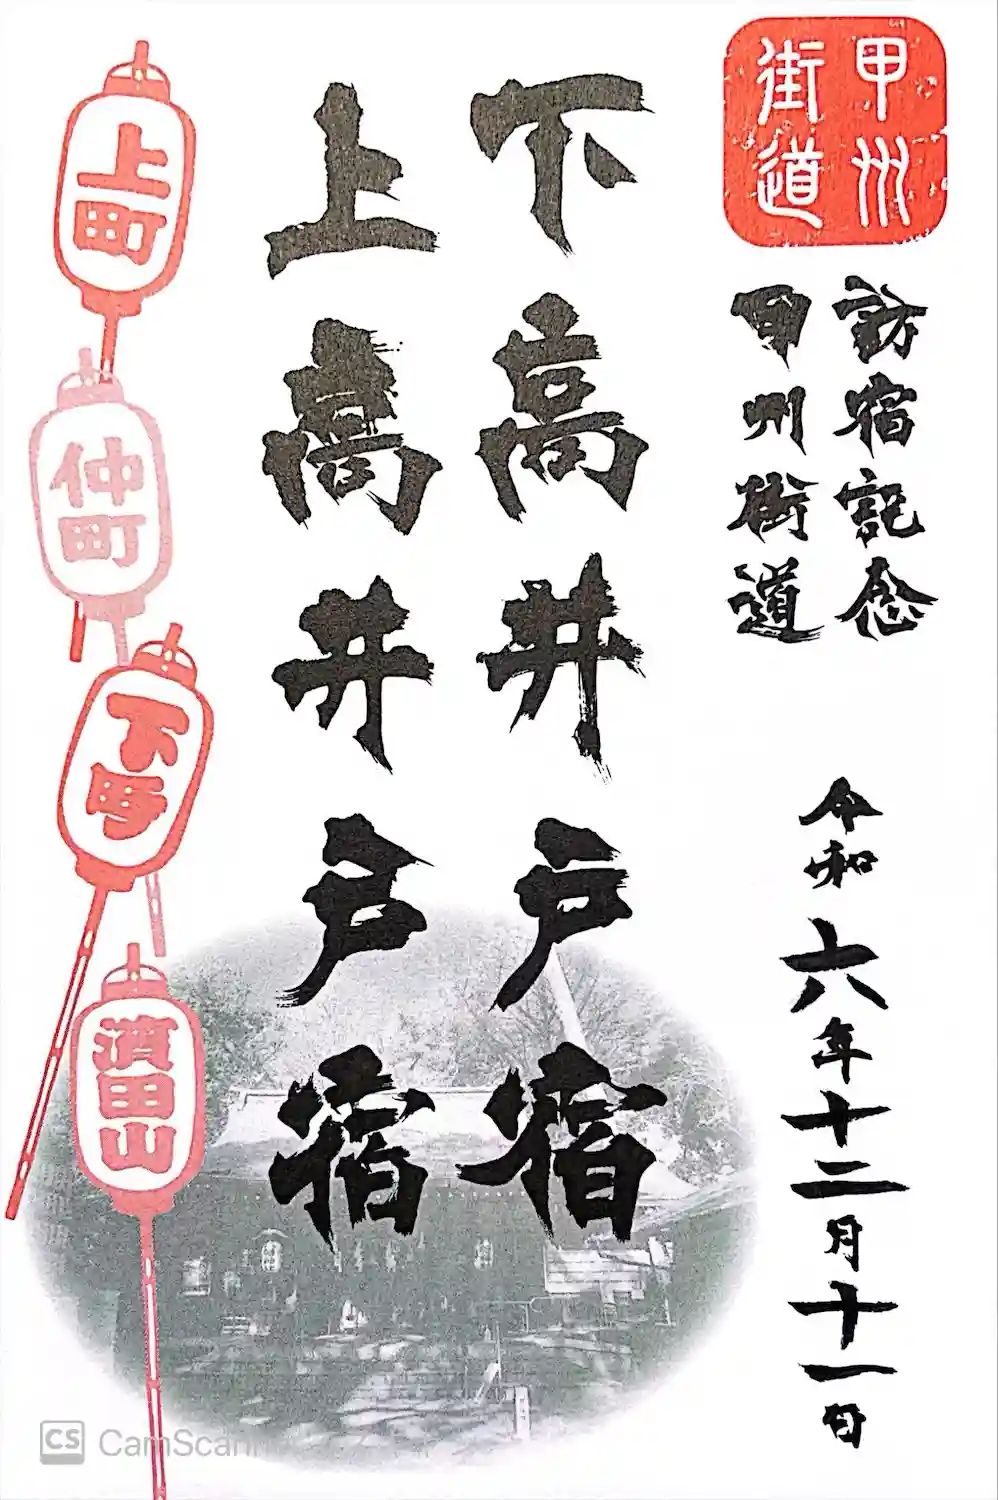 甲州
街道
訪宿記念
甲州街道
令和六年十二月十一日
下高井戸宿
上高井戸宿
上町
仲町
下町
濱田山
CS CamScan